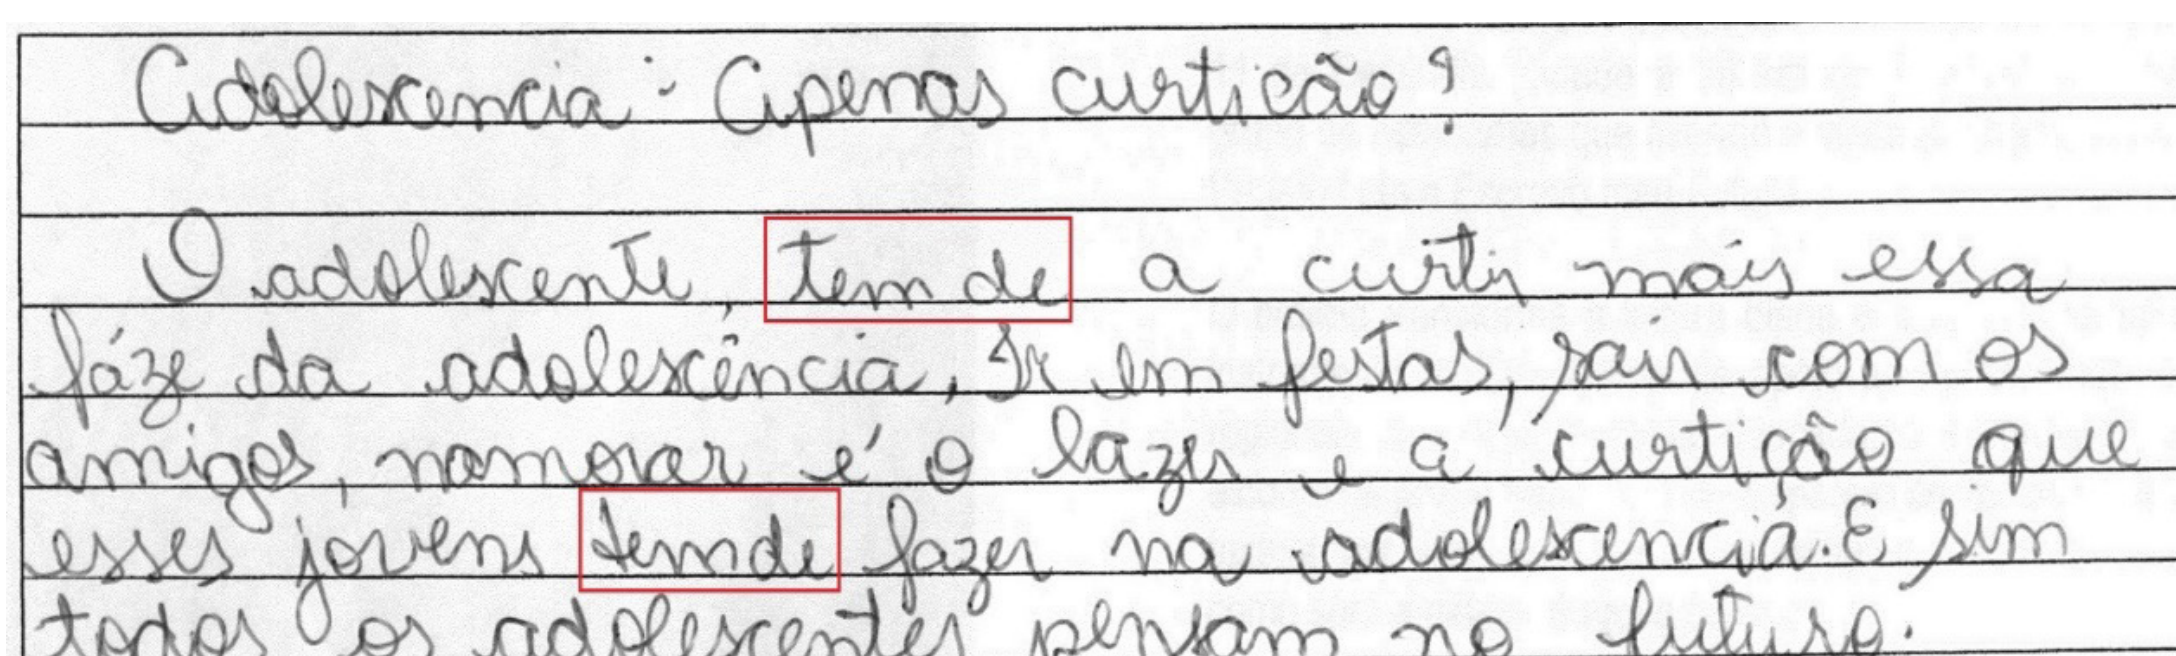 Adolescencia: Apenas curticão?
O adolescente, tem de a curtir mais essa
fáze da adolescência, Ir em festas, sair com os
amigos, namorar é o lazer e a curtição que
esses jóvens temde fazer na adolescencia. E sim
todos os adolescentes pensam no futuro.